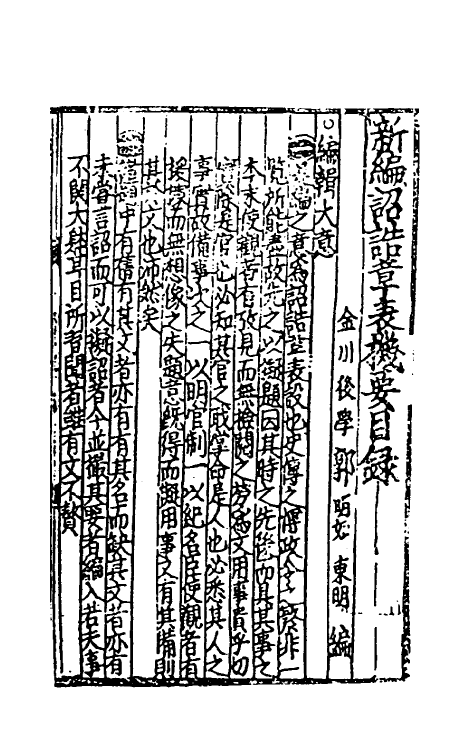 新編詔誥章表機要目録
金川後學郭明如東明編
編輯大意
是編之意爲詔誥章表設也史傳之傳政令之繁非一
覽所能盡故先之以擬題因其時之先後而具其事之
本末使觀者有攷見而無檢閱之勞爲文用事貴乎切
實除是官也必知其官之職掌命是人也必悉其人之
事實故備事文之一以明官制一以紀名臣使觀者有
援據而無想像之失題意既得而擬用事又有其備則
其於文也沛然矣
題中有舊有其文者亦有有其名而缺其文者亦有
未嘗言詔而可以擬詔者今並撮其要者編入若夫事
不関大肆耳目所習聞者雖有文不贅